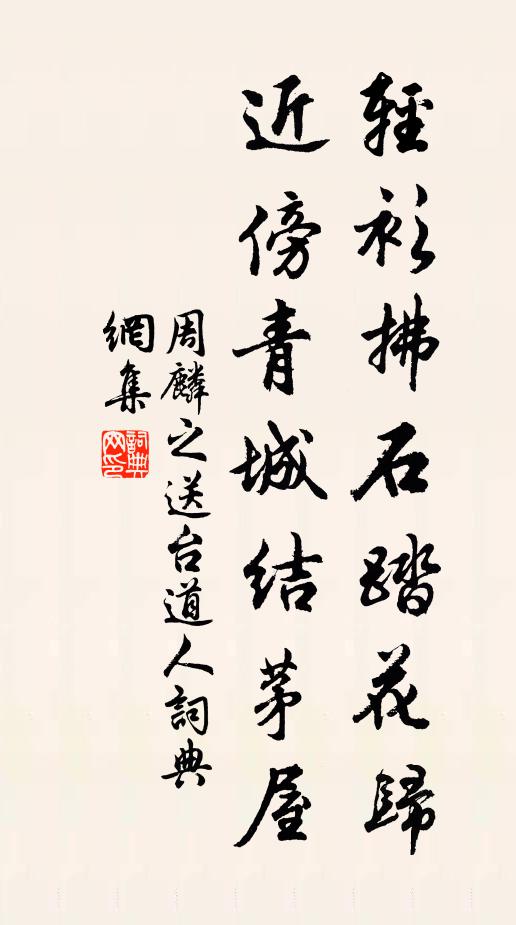 輕衫拂石踏花歸
近傍青城結茅屋
周麟之送台道人詞典
網集
詞典
网印